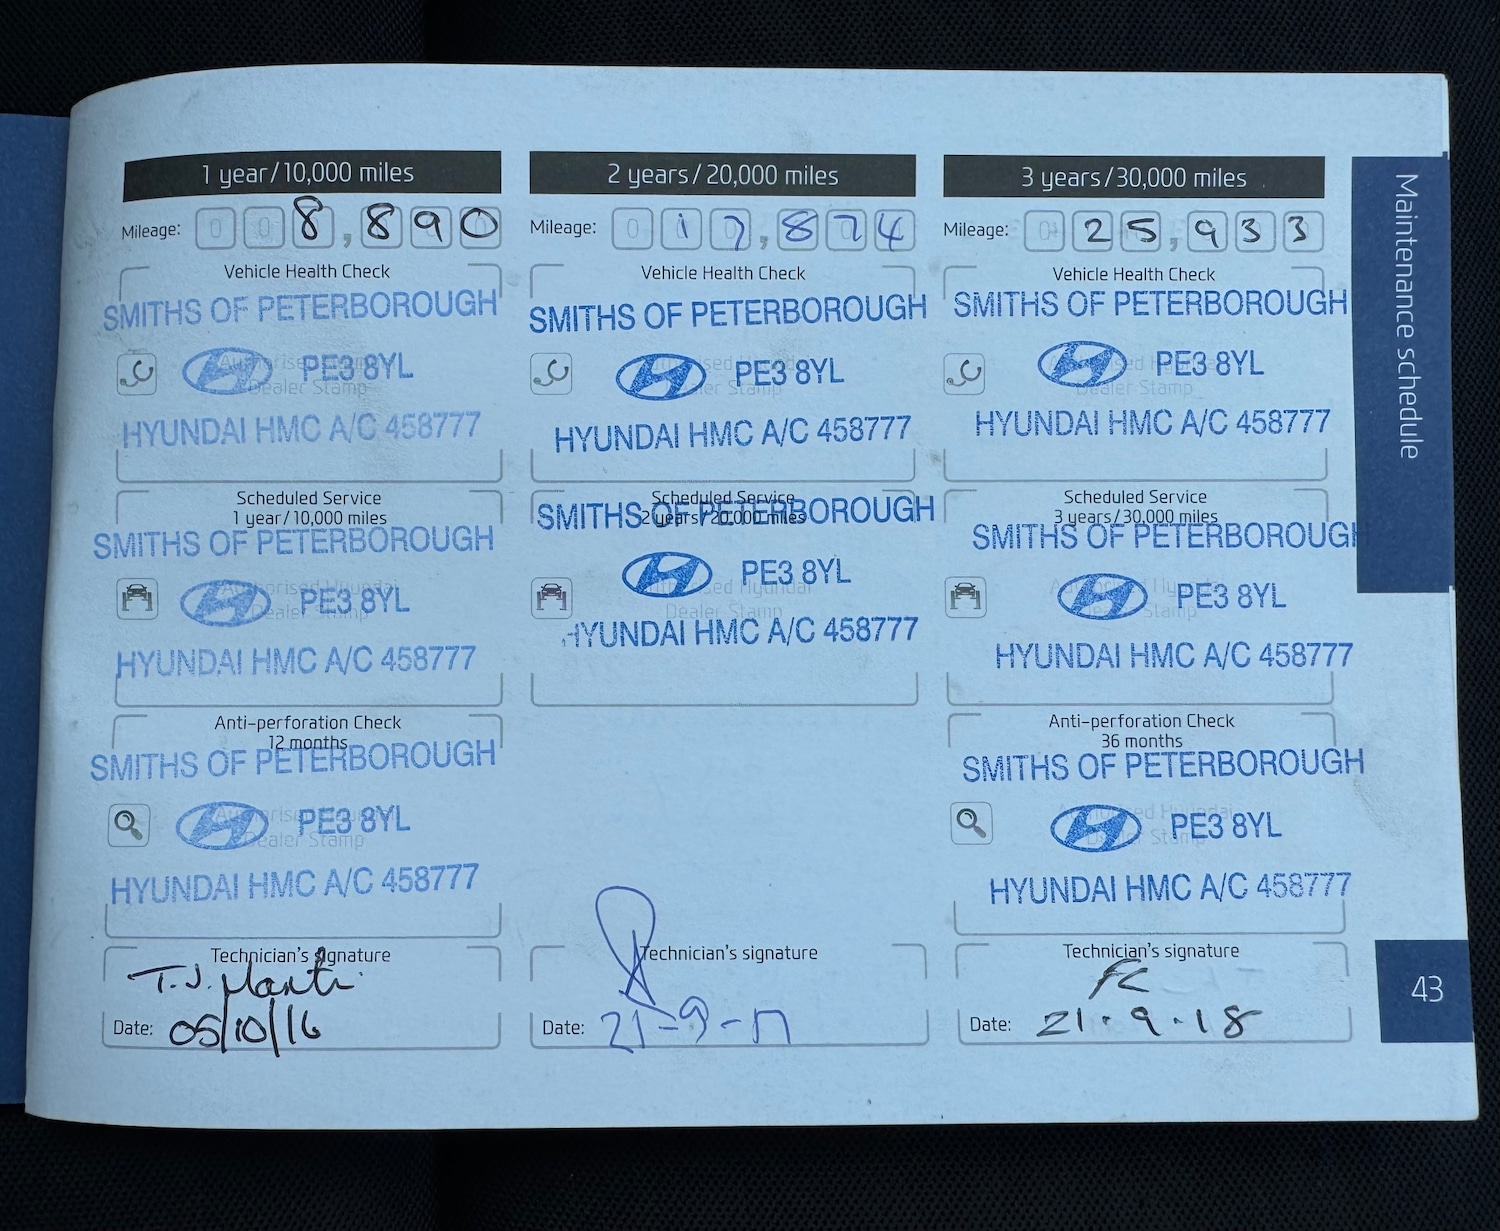 1 year/10,000 miles
Mileage: 0 0 8,890
Vehicle Health Check
SMITHS OF PETERBOROUGH
Authorised Hyundai
PE3 8YL
Dealer Stamp
HYUNDAI HMC A/C 458777
Scheduled Service
1 year/10,000 miles
SMITHS OF PETERBOROUGH
Authorised Hyundai
PE3 8YL
Dealer Stamp
HYUNDAI HMC A/C 458777
Anti-perforation Check
12 months
SMITHS OF PETERBOROUGH
Authorised Hyundai
PE3 8YL
Dealer Stamp
HYUNDAI HMC A/C 458777
Technician's signature
T.J.
Date: 05/10/16
2 years/20,000 miles
Mileage: 0 17,874
Vehicle Health Check
SMITHS OF PETERBOROUGH
Authorised Hyundai
PE3 8YL
Dealer Stamp
HYUNDAI HMC A/C 458777
Scheduled Service
2 years/20,000 miles
SMITHS OF PETERBOROUGH
PE3 8YL
Authorised Hyundai
Dealer Stamp
HYUNDAI HMC A/C 458777
Technician's signature
Date: 21-9-17
3 years/30,000 miles
Mileage: 0 25,933
Vehicle Health Check
SMITHS OF PETERBOROUGH
Authorised Hyundai
PE3 8YL
Dealer Stamp
HYUNDAI HMC A/C 458777
Scheduled Service
3 years/30,000 miles
SMITHS OF PETERBOROUGH
Authorised Hyundai
PE3 8YL
Dealer Stamp
HYUNDAI HMC A/C 458777
Anti-perforation Check
36 months
SMITHS OF PETERBOROUGH
Authorised Hyundai
PE3 8YL
Dealer Stamp
HYUNDAI HMC A/C 458777
Technician's signature
Date: 21.9.18
Maintenance schedule
43